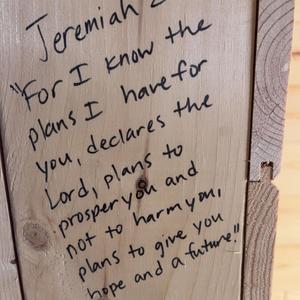 Jeremiah 2
"For I know the
plans I have for
you, declares the
Lord, plans to
prosper you and
not to harm you,
plans to give you
hope and a future."